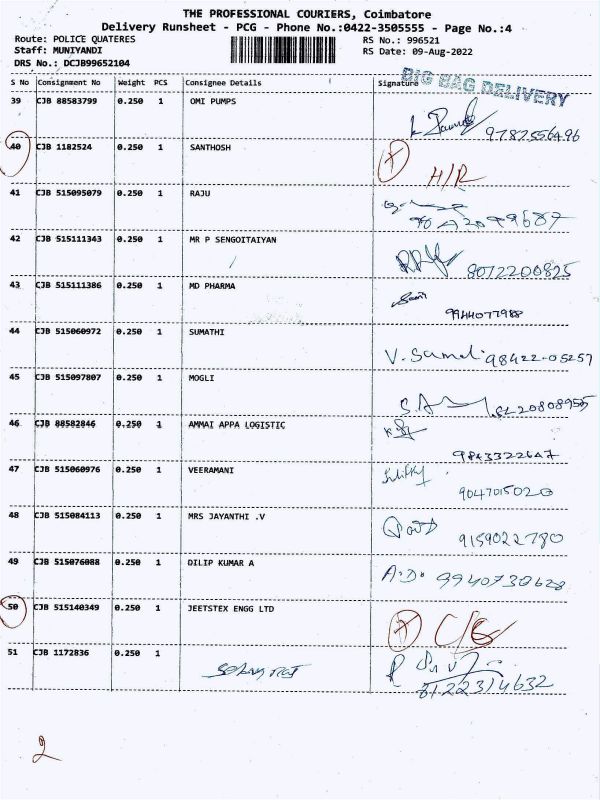 THE PROFESSIONAL COURIERS, Coimbatore
Delivery Runsheet - PCG - Phone No.:0422-3505555 - Page No.:4
Route: POLICE QUATERES RS No.: 996521
Staff: MUNIYANDI RS Date: 09-Aug-2022
DRS No.: DCJB99652104
S No Consignment No Weight PCS Consignee Details Signature
BIG BAG DELIVERY
39 CJB 88583799 0.250 1 OMI PUMPS
9787556496
40 CJB 1182524 0.250 1 SANTHOSH
H/R
41 CJB 515095079 0.250 1 RAJU
42 CJB 515111343 0.250 1 MR P SENGOITAIYAN
8072200825
43 CJB 515111386 0.250 1 MD PHARMA
9944077988
44 CJB 515060972 0.250 1 SUMATHI
98422-05257
45 CJB 515097807 0.250 1 MOGLI
46 CJB 88582846 0.250 1 AMMAI APPA LOGISTIC
9843322647
47 CJB 515060976 0.250 1 VEERAMANI
9047015020
48 CJB 515084113 0.250 1 MRS JAYANTHI .V
9159022780
49 CJB 515076088 0.250 1 DILIP KUMAR A
A.D. 9940730628
50 CJB 515140349 0.250 1 JEETSTEX ENGG LTD
51 CJB 1172836 0.250 1
8122314632
2